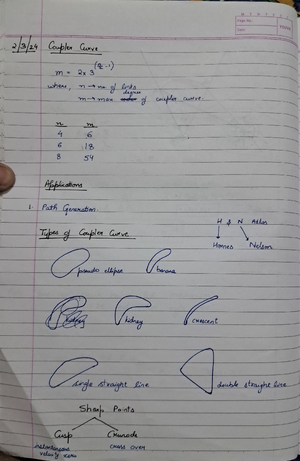 2/3/24 Coupler Curve
m = 2 x 3^(n/2 - 1)
where, n → no of links
degree
m → max of coupler curve.
n m
4 6
6 18
8 54
Applications
1. Path Generation
H & N Atlas
Hrones Nelson
Types of Coupler Curve
pseudo ellipse banana
kidney kidney crescent
single straight line double straight line
Sharp Points
Cusp Crunode
instantaneous cross over
velocity zero